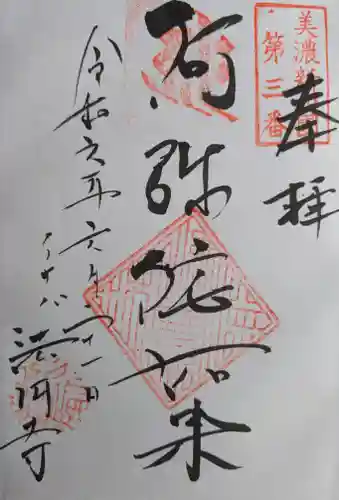 奉拝
美濃新四国
第三番
阿弥陀如来
令和六年六月二十一日
法円寺